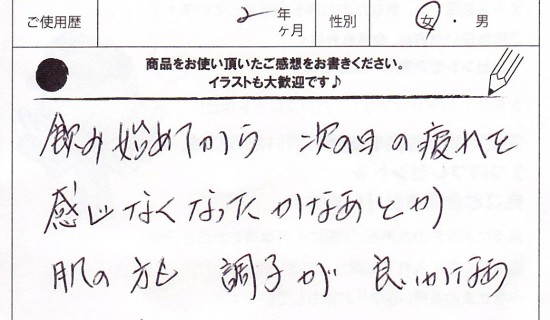 ご使用歴 2 年 ヶ月 性別 女 ・ 男
商品をお使い頂いたご感想をお書きください。
イラストも大歓迎です♪
飲み始めてから 次の日の疲れを
感じなくなったかなあとか
肌の方も 調子が 良いかなあ